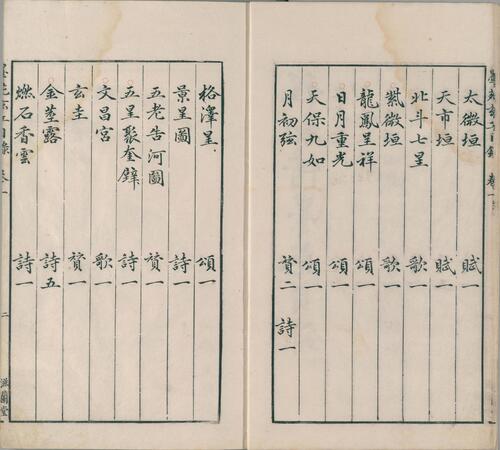 太微垣 賦一
天市垣 賦一
北斗七星 歌一
紫微垣 歌一
龍鳳呈祥 頌一
日月重光 頌一
天保九如 頌一
月初弦 贊二 詩一
格澤星 頌一
景星圖 詩一
五老告河圖 贊一
五星聚奎壁 詩一
文昌宮 歌一
玄圭 贊一
金莖露 詩五
燃石香雲 詩一
目錄 卷一 二 滋蘭堂